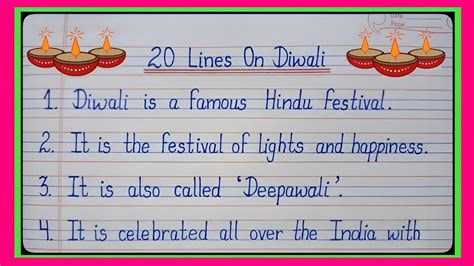 Date
Page
20 Lines On Diwali
1. Diwali is a famous Hindu festival.
2. It is the festival of lights and happiness.
3. It is also called 'Deepawali'.
4. It is celebrated all over the India with